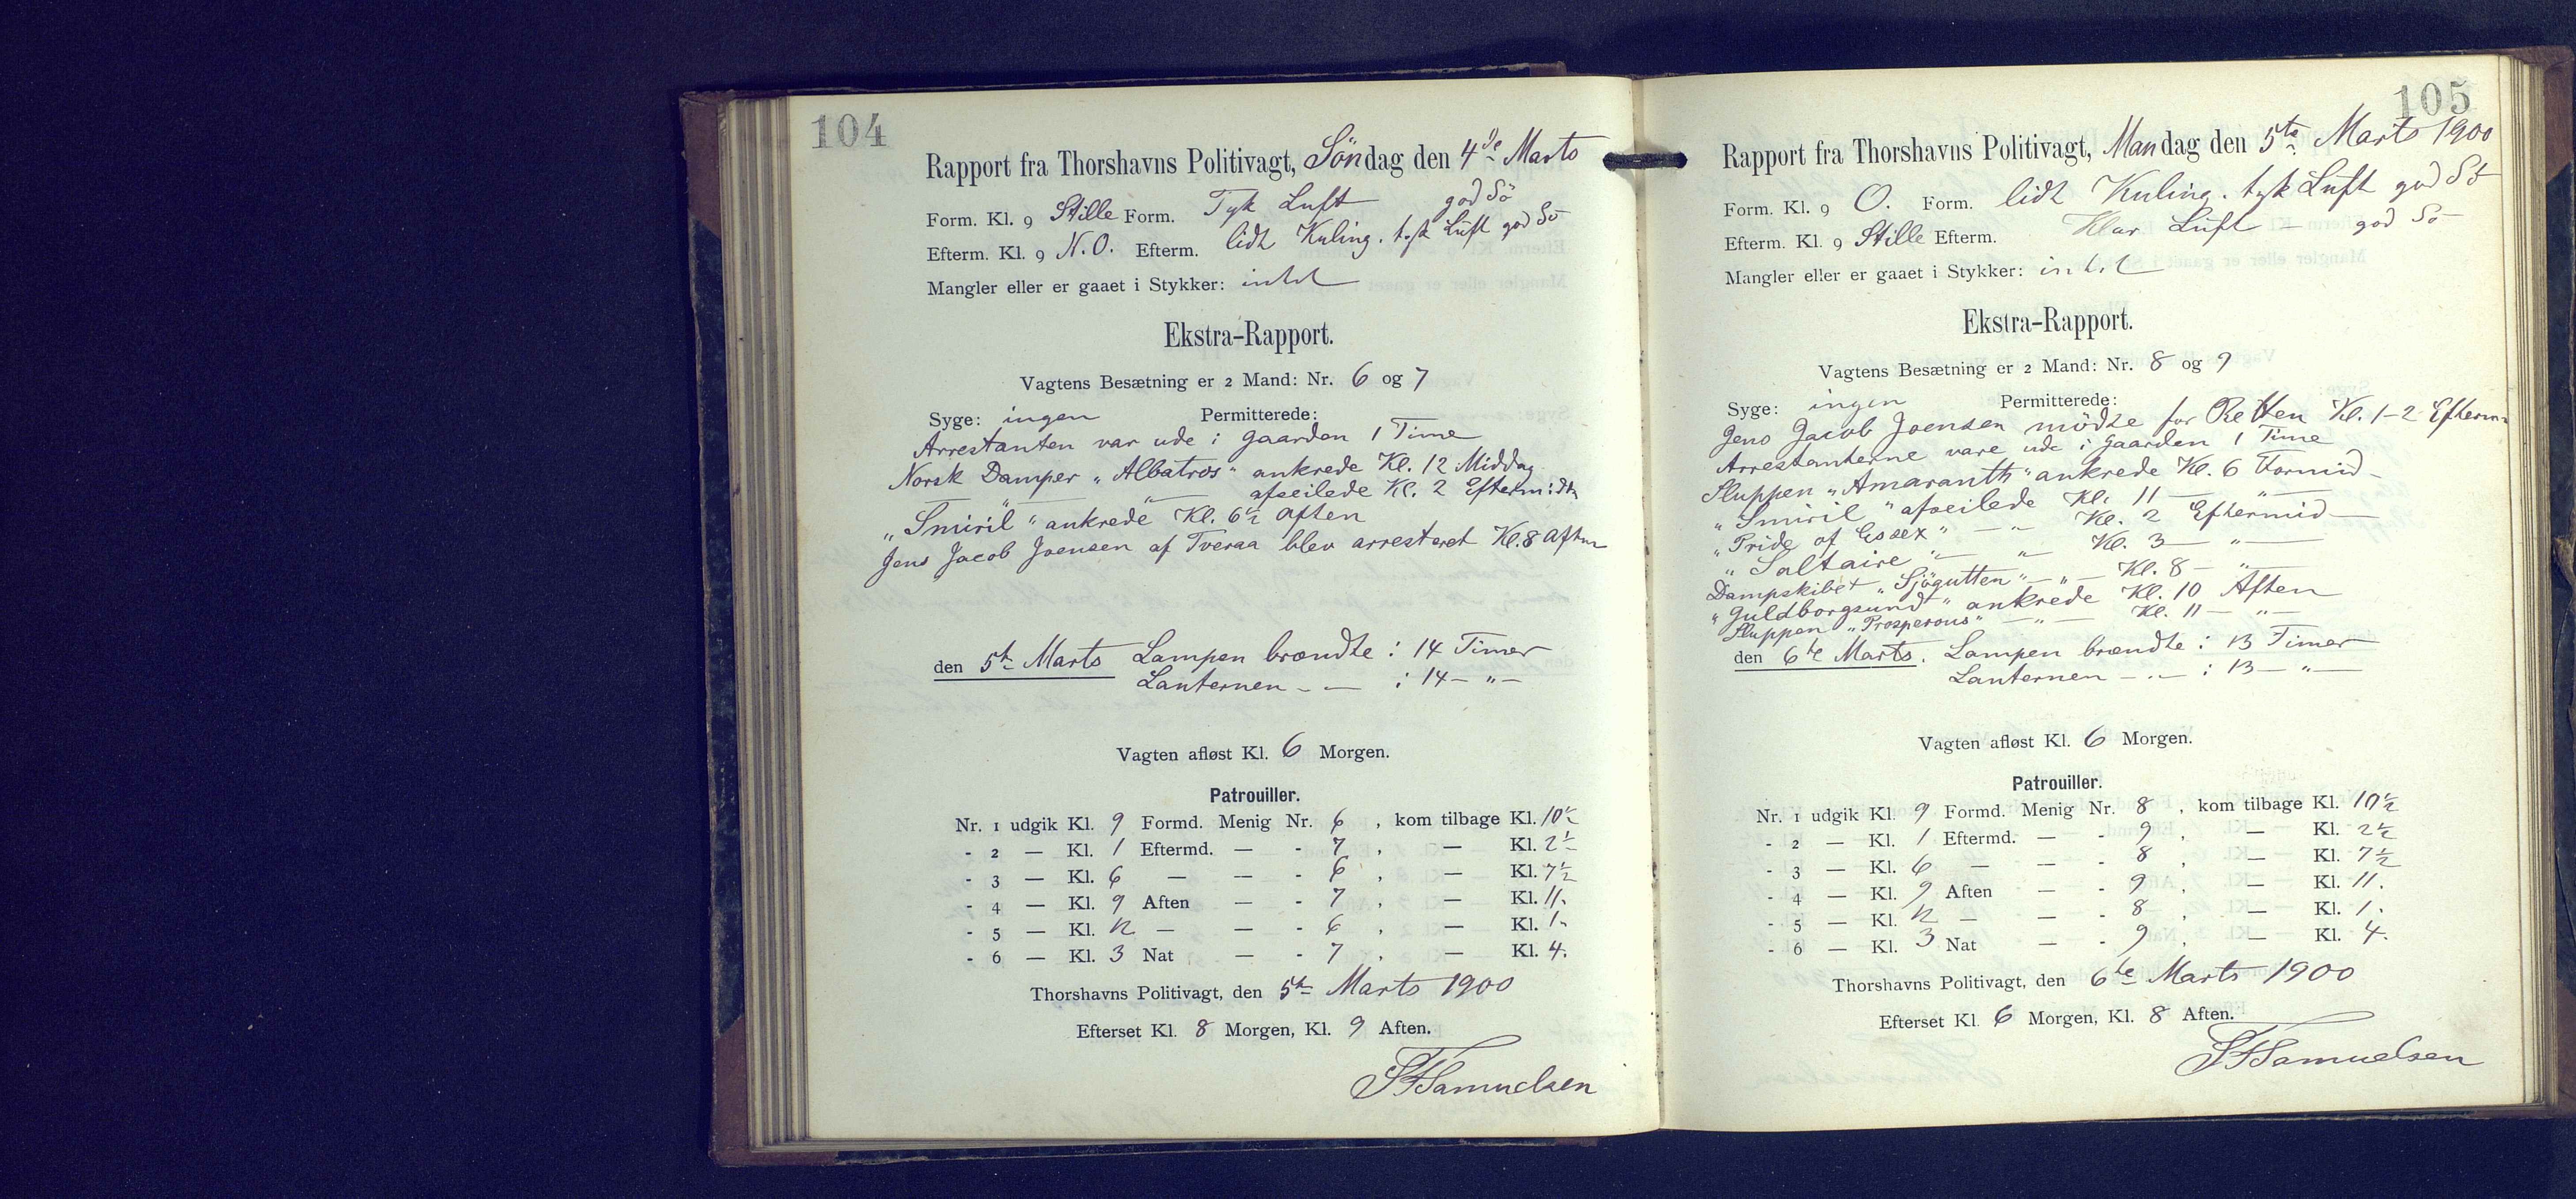 104
Rapport fra Thorshavns Politivagt, Söndag den 4de Marts
Form. Kl. 9 Stille Form. Tyk Luft god Sö
Efterm. Kl. 9 N.O. Efterm. lidt Kuling. tyk Luft god Sö
Mangler eller er gaaet i Stykker: intet
Ekstra-Rapport.
Vagtens Besætning er 2 Mand: Nr. 6 og 7
Syge: ingen Permitterede:
Arrestanten var ude i Gaarden 1 Time
Norsk Damper „Albatros“ ankrede Kl. 12 Middag
— „ — „ — afseilede Kl. 2 Eftermidt
„Smiril“ ankrede Kl. 6½ Aften
Jens Jacob Joensen af Tveraa blev arresteret Kl. 8 Aften
den 5te Marts Lampen brændte i 14 Timer
Lanternen - — i 14 — „ —
Vagten afløst Kl. 6 Morgen.
Patrouiller.
Nr. 1 udgik Kl. 9 Formd. Menig Nr. 6 , kom tilbage Kl. 10½
- 2 — Kl. 1 Eftermd. — - 7 , — Kl. 2½
- 3 — Kl. 6 — — - 6 , — Kl. 7½
- 4 — Kl. 9 Aften — - 7 , — Kl. 11.
- 5 — Kl. 12 — — - 6 , — Kl. 1.
- 6 — Kl. 3 Nat — - 7 , — Kl. 4.
Thorshavns Politivagt, den 5te Marts 1900
Efterset Kl. 8 Morgen, Kl. 9 Aften.
SFSamuelsen
105
Rapport fra Thorshavns Politivagt, Mandag den 5te Marts 1900
Form. Kl. 9 O. Form. lidt Kuling. tyk Luft god Sö
Efterm. Kl. 9 Stille Efterm. Klar Luft — god Sö
Mangler eller er gaaet i Stykker: intet
Ekstra-Rapport.
Vagtens Besætning er 2 Mand: Nr. 8 og 9
Syge: ingen Permitterede:
Jens Jacob Joensen mödte for Retten Kl. 1-2 Efterm.
Arrestanterne vare ude i Gaarden 1 Time
Sluppen „Amaranth“ ankrede Kl. 6 Formid —
„Smiril“ afseilede Kl. 11 — „ —
„Pride of Essex“ — „ Kl. 2 Eftermid —
„Saltaire“ — „ Kl. 3 — „ —
Dampskibet „Sjögutten“ — „ — Kl. 8 — „ —
„Guldborgsund“ ankrede Kl. 10 Aften
Sluppen „Prosperous“ — „ — Kl. 11 — „ —
den 6te Marts. Lampen brændte i 13 Timer
Lanternen — „ — i 13 — „ —
Vagten afløst Kl. 6 Morgen.
Patrouiller.
Nr. 1 udgik Kl. 9 Formd. Menig Nr. 8 , kom tilbage Kl. 10½
- 2 — Kl. 1 Eftermd. — - 9 , — Kl. 2½
- 3 — Kl. 6 — — - 8 , — Kl. 7½
- 4 — Kl. 9 Aften — - 9 , — Kl. 11.
- 5 — Kl. 12 — — - 8 , — Kl. 1.
- 6 — Kl. 3 Nat — - 9 , — Kl. 4.
Thorshavns Politivagt, den 6te Marts 1900
Efterset Kl. 6 Morgen, Kl. 8 Aften.
SFSamuelsen